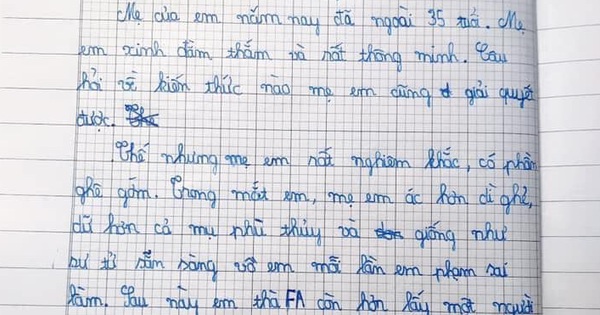 Mẹ của em năm nay đã ngoài 35 tuổi. Mẹ
em xinh đằm thắm và rất thông minh. Câu
hỏi về kiến thức nào mẹ em cũng giải quyết
được.
Thế nhưng mẹ em rất nghiêm khắc, có phần
ghê gớm. Trong mắt em, mẹ em ác hơn dì ghẻ,
dữ hơn cả mụ phù thủy và giống như
sư tử sẵn sàng vồ em mỗi lần em phạm sai
lầm. Sau này em thà FA còn hơn lấy một người